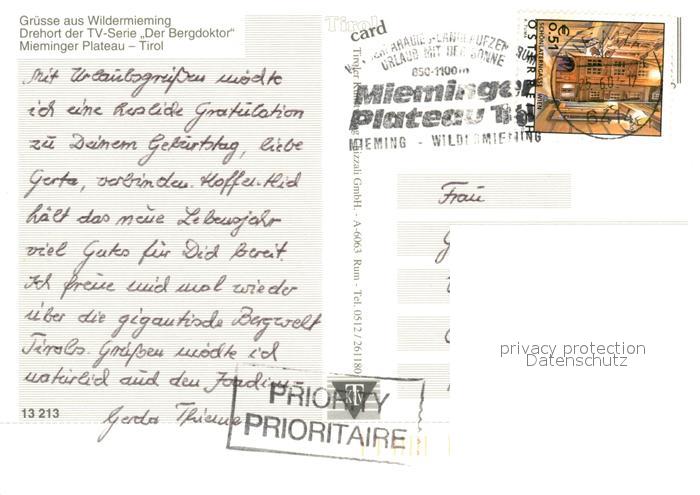 Grüsse aus Wildermieming
Drehort der TV-Serie „Der Bergdoktor“
Mieminger Plateau – Tirol
Mit Urlaubsgrüßen möchte
ich eine herzliche Gratulation
zu Deinem Geburtstag, liebe
Gerta, verbinden. Hoffentlich
hält das neue Lebensjahr
viel Gutes für Dich bereit.
Ich freue mich mal wieder
über die gigantische Bergwelt
Tirols. Grüßen möchte ich
natürlich auch den
Gerda Thieme
13 213
Tirol
card
Tiroler GmbH. - A-6063 Rum - Tel. 0512 / 261180
URLAUB MIT DER SONNE
850-1100m
Mieminger
Plateau
MIEMING - WILDERMIEMING
€ 0,51
SCHÖNLATERNGASSE, WIEN
ÖSTERREICH
6414
Frau
PRIORITY
PRIORITAIRE
privacy protection
Datenschutz